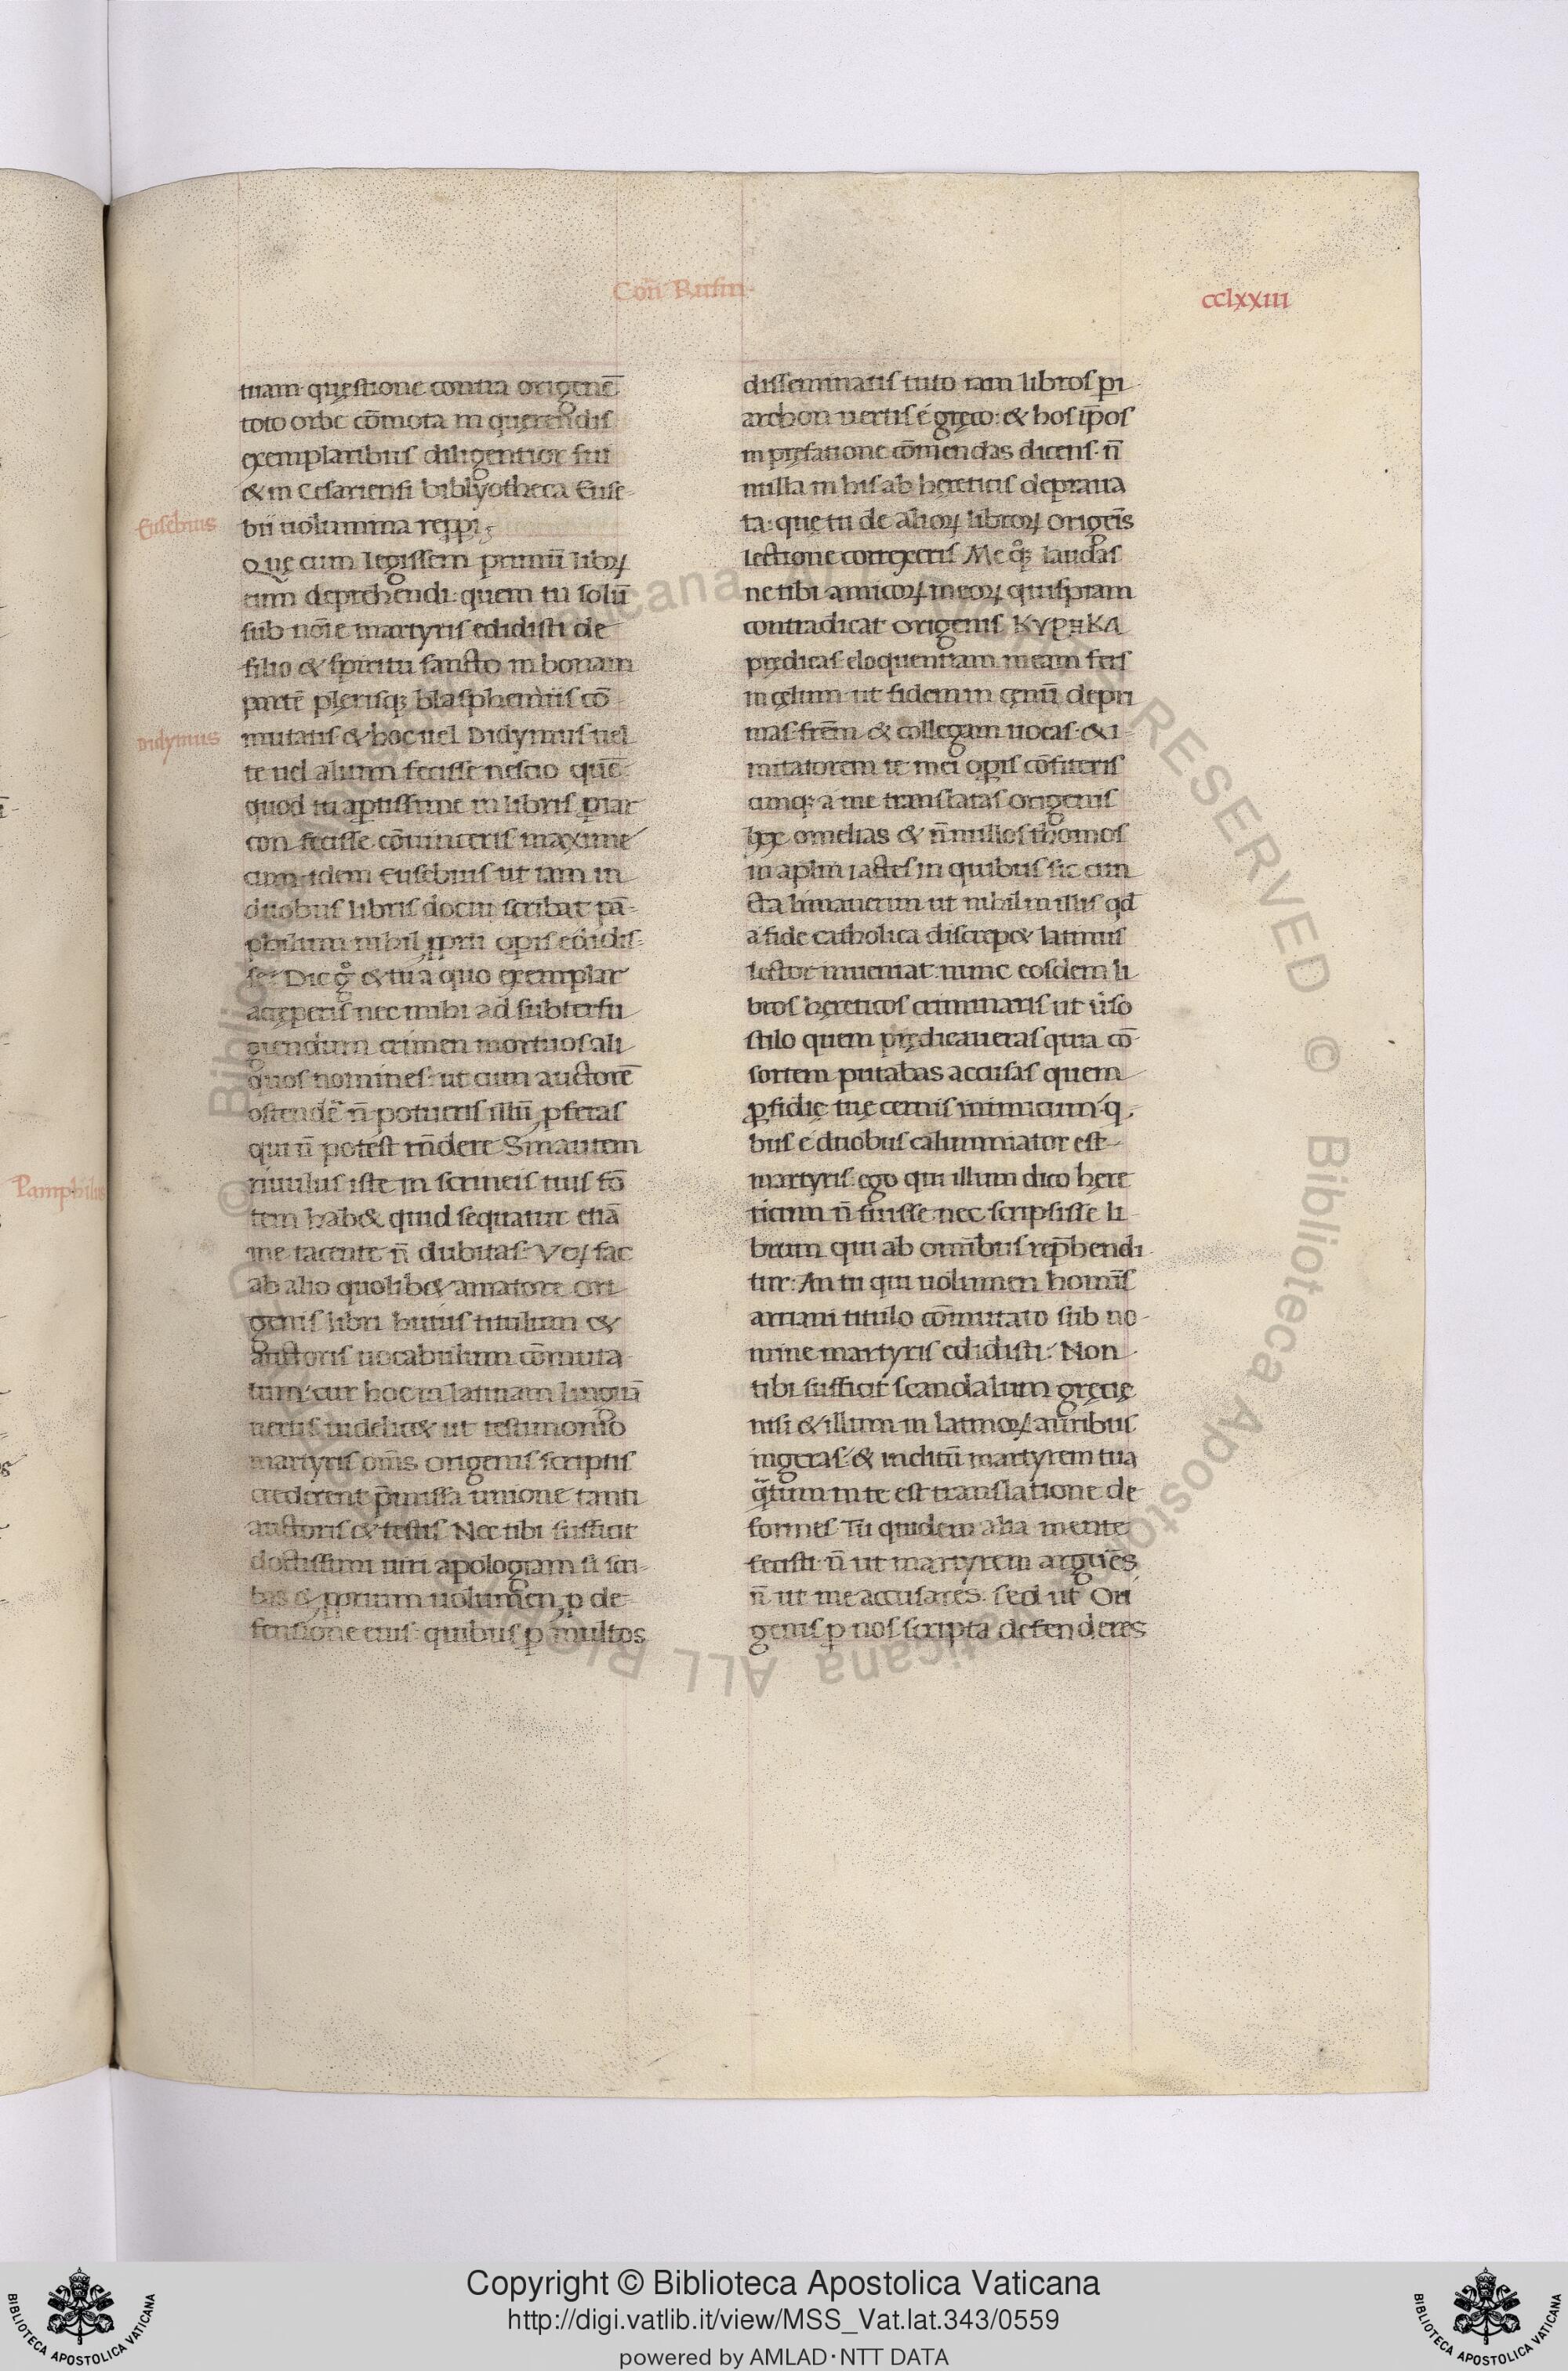 Con̄ Rufin·
cclxxiii
tuam questione contra origenē
toto orbe cōmota in querendis
exemplaribus diligentior fui
& in Cesariensi biblyotheca Euse-
Eusebius
bii uolumina repperi;
Que cum legissem primū libꝝ
eum deprehendi: quem tu solū
sub noīe martyris edidisti de
filio & spiritu sancto in bonam
partē plerisq; blasphemiis cō
Didymus
mutatis & hoc uel Didymus uel
te uel alium fecisse nescio quē:
quod tu aptissime in libris piar
con fecisse cōuinceris maxime
cum idem Eusebius ut iam in
duobus libris docui scribat pā-
philum nihil ꝓprii opis edidis-
se: Dic g° & tu a quo exemplar
acceperis nec mihi ad subterfu
giendum crimen mortuos ali
quos nomines: ut cum auctorē
ostendē n̄ potueris illū ꝓferas
qui n̄ potest rn̄dere Sin autem
Pamphilus
riuulus iste in scrineis tuis fō
tem hab& quid sequatur etiā
me tacente n̄ dubitas: Veꝝ fac
ab alio quolib& amatore Ori
genis libri huius titulum &
auctoris uocabulum cōmuta
tum: cur hoc in latinam linguā
uertis uidelic& ut testimonio
martyris om̄s Origenis scriptis
crederent p̄missa unione tanti
auctoris & testis Nec tibi sufficit
doctissimi uiri apologiam si scri-
bas & ꝓprium uolumen ꝓ de-
fensione eius: quibus ꝑ multos
disseminatis tuto iam libros pi
archon uertis e greco: & hos ip̄os
in prefatione cōmendas dicens· n̄
nulla in his ab hereticis depraua
ta: que tu de alioꝝ libroꝝ origeīs
lectione correxeris Me q°q; laudas
ne tibi amicoꝝ meoꝝ quispiam
contradicat origenis ΚΥΡΗΚΑ
predicas eloquentiam meam fers
in celum· ut fidem in cenū depri
mas· frēm & collegam uocas· & i-
mitatorem te mei opis cōfiteris
cumq; a me translatas origenis
lxx omelias & n̄nullos thomos
in aplm̄ iactes in quibus sic cun
cta limauerim ut nihil in illis qd̄
a fide catholica discrep& latinus
lector inueniat· nunc eosdem li
bros hereticos criminaris ut u°so
stilo quem predicaueras quia cō-
sortem putabas accusas quem
ꝑfidie tue cernis inimicum· q
bus e duobus calumniator est-
martyris· ego qui illum dico here
ticum n̄ fuisse nec scripsisse li-
brum qui ab omībus rep̄hendi-
tur: An tu qui uolumen homīs
arriani titulo cōmutato sub no-
mine martyris edidisti: Non
tibi sufficit scandalum grecie
nisi & illum in latinoꝝ auribus
ingeras· & inclitū martyrem tua
q̄tum in te est translatione de
formes Tu quidem alia mente
fecisti· n̄ ut martyrem arguēs
n̄ ut me accusares· sed ut Ori
genis ꝑ nos scripta defenderes
Copyright © Biblioteca Apostolica Vaticana
http://digi.vatlib.it/view/MSS_Vat.lat.343/0559
powered by AMLAD·NTT DATA
BIBLIOTECA APOSTOLICA VATICANA
BIBLIOTECA APOSTOLICA VATICANA